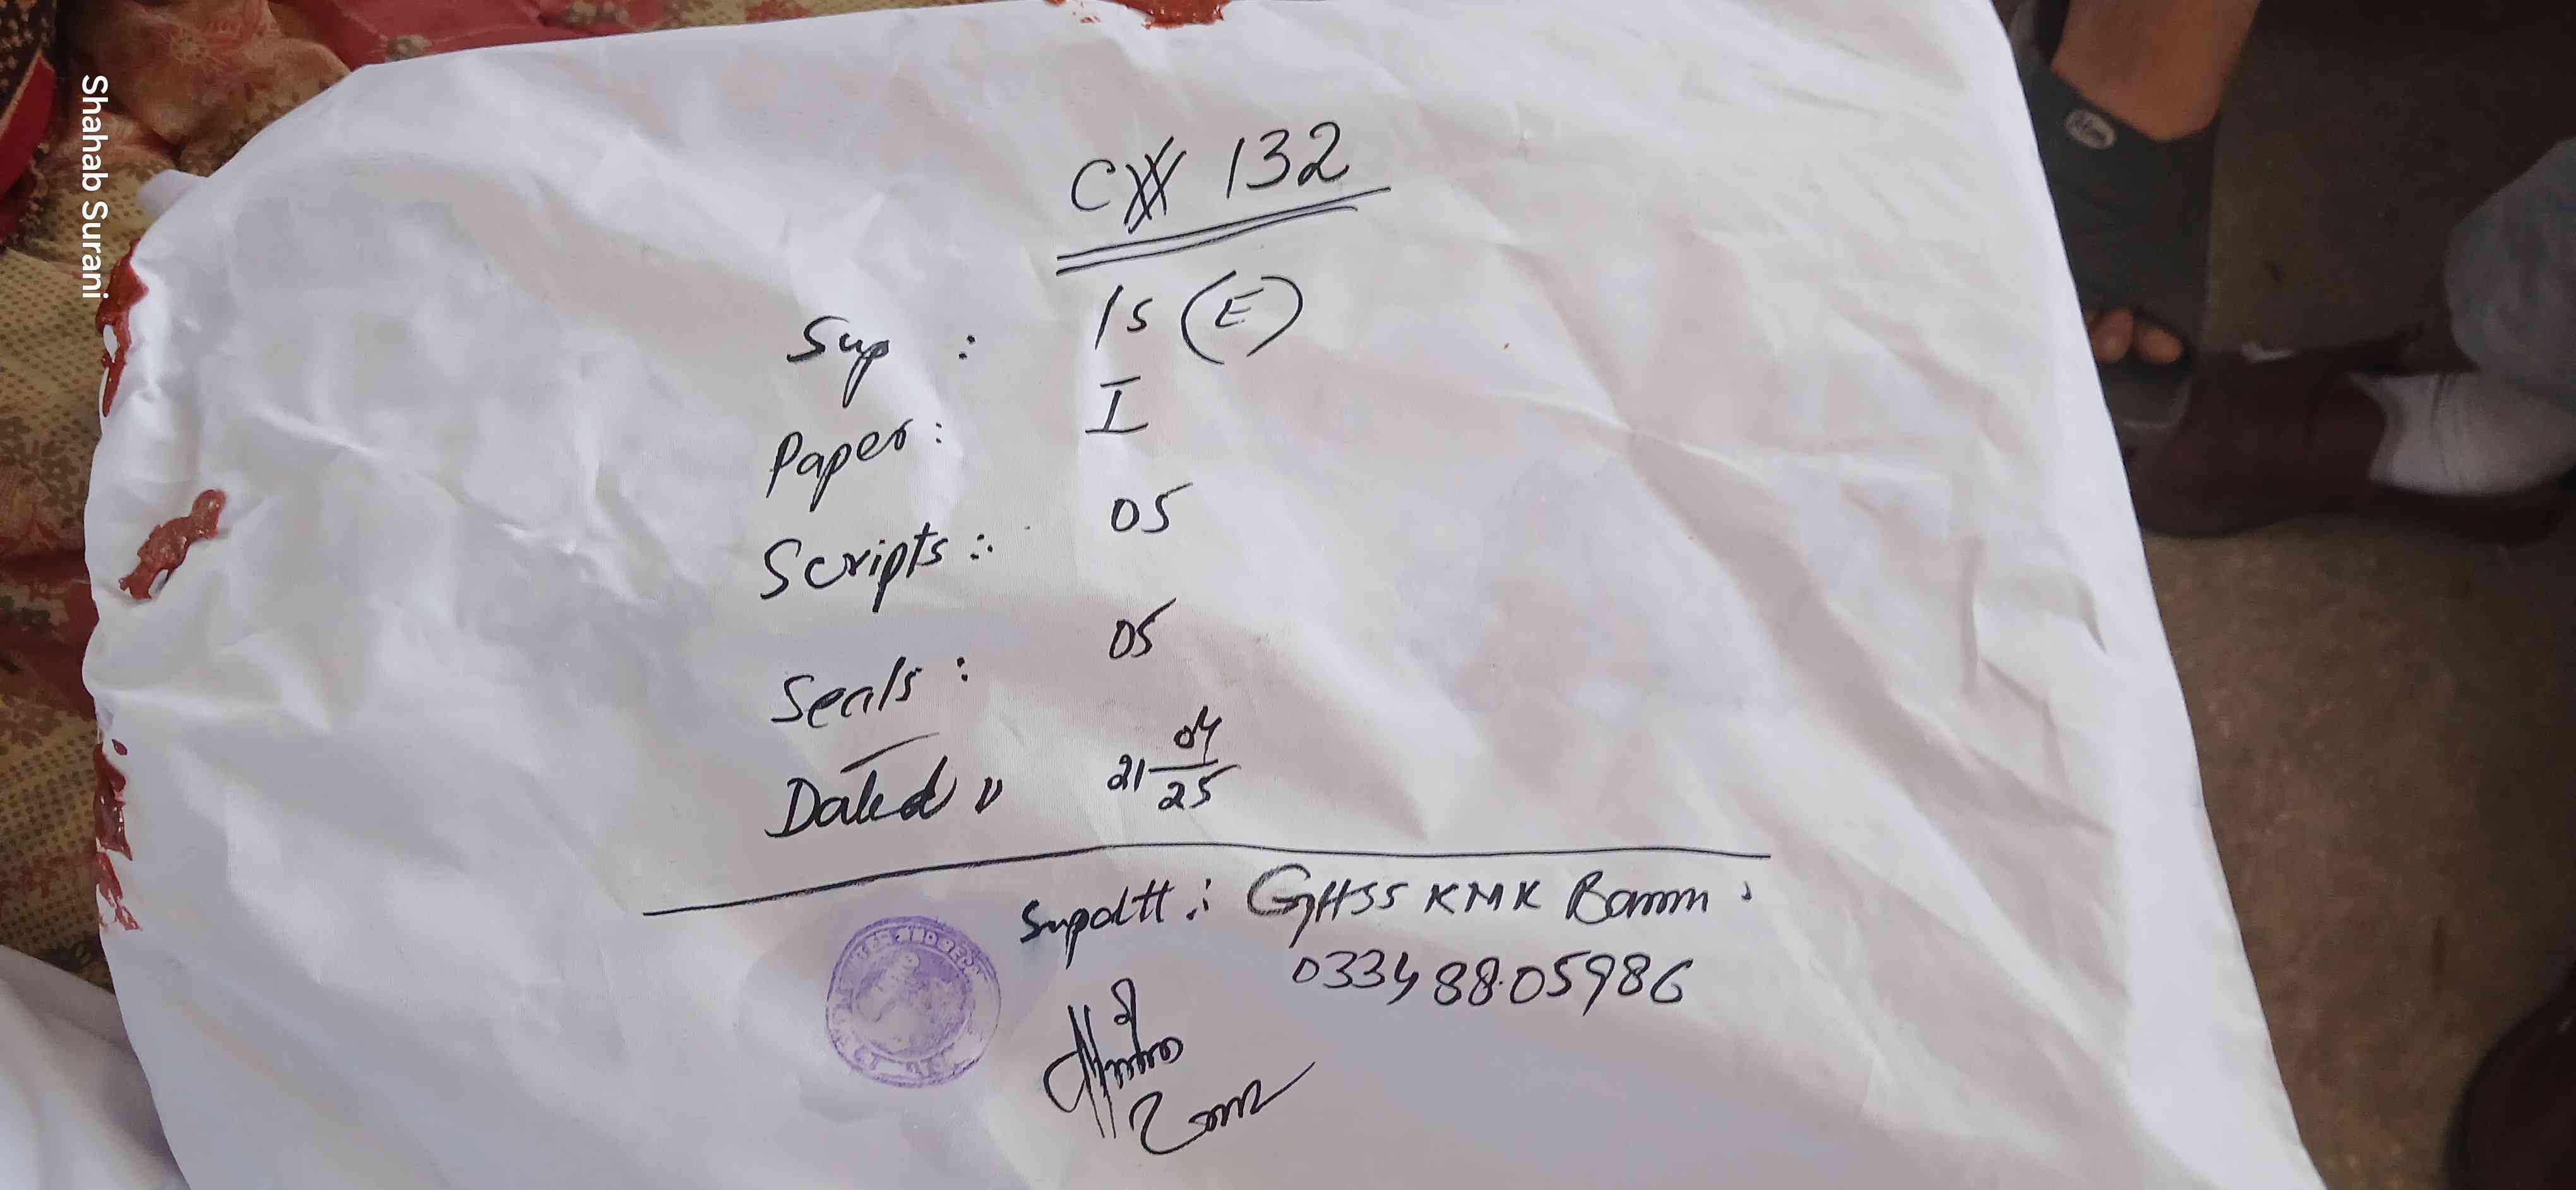 C# 132
Sup : 1s (E)
Paper : I
Scripts :. 05
Seals : 05
Dated " 21 04/25
Supdtt .: GHSS KMK Bannu
0334 88 05986
Shahab Surani